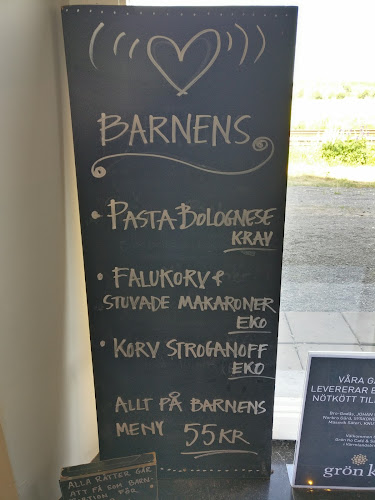 BARNENS
• PASTA BOLOGNESE
KRAV
• FALUKORV &
STUVADE MAKARONER
EKO
• KORV STROGANOFF
EKO
ALLT PÅ BARNENS
MENY 55KR
ALLA RÄTTER GÅR
ATT FÅ SOM BARN-
PORTION FÖR
VÅRA G
LEVERERAR E
NÖTKÖTT TILL
grön k